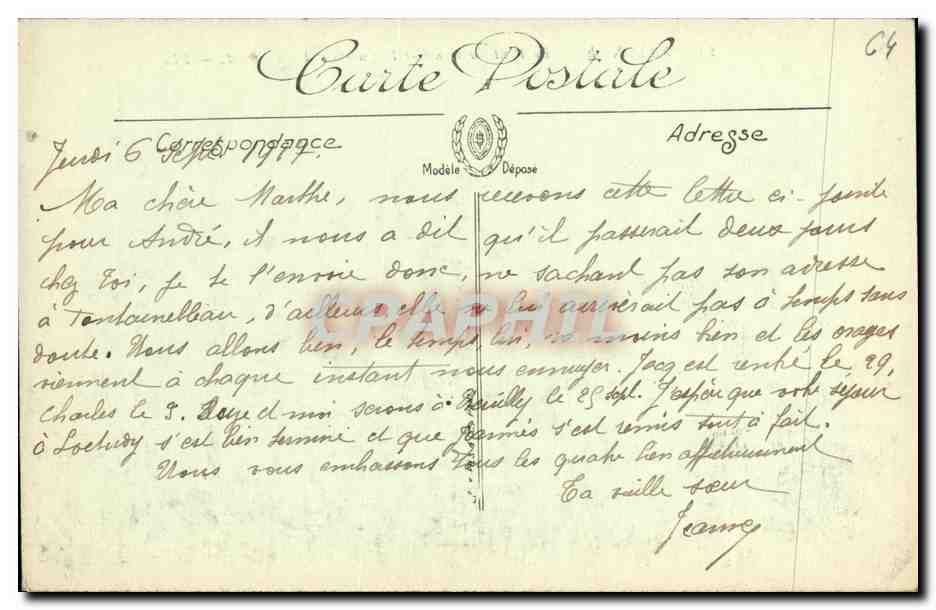 64
Carte Postale
Correspondance
Adresse
Modèle Déposé
Jeudi 6 Sept 1917.
Ma chère Marthe, nous recevons cette lettre ci-jointe
pour André, il nous a dit qu'il passerait deux jours
chez toi, je te l'envoie donc, ne sachant pas son adresse
à Fontainebleau, d'ailleurs elle lui arriverait pas à temps sans
doute. Nous allons bien, le temps lui, va moins bien et les orages
viennent à chaque instant nous ennuyer. Jacq est rentré le 29,
Charles le 3. et moi serons à Neuilly le 25 sept. J'espère que votre séjour
à Loctudy s'est bien terminé et que s'est remis tout à fait.
Nous vous embrassons tous les quatre bien affectueusement
Ta vieille sœur
Jeanne
CPAPHIL